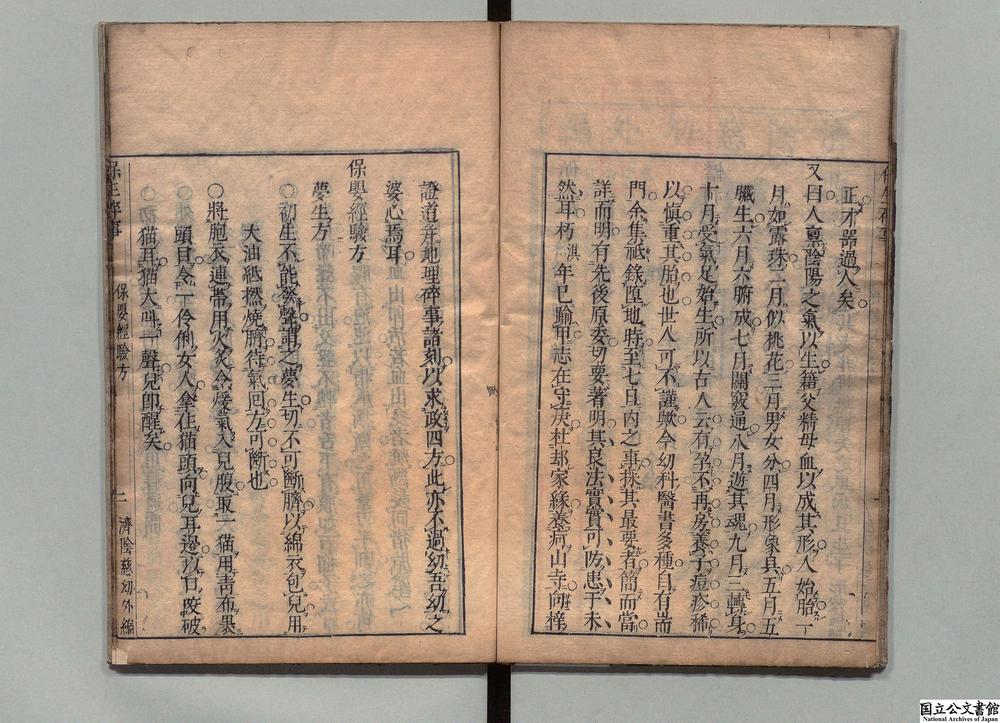 正才器過人矣
又曰人稟陰陽之氣以生籍父精母血以成其形入始胎一
月如露珠二月似桃花三月男女分四月形象具五月五
臟生六月六腑成七月關竅通八月遊其魂九月三轉身
十月受氣足始生所以古人云有孕不再房養子痘疹稀
以愼重其胎也世人可不謹歟今幼科醫書多種自有耑
門余集祗錄墮地時至七日內之事採其最要者簡而當
詳而明有先後原委切要著明其良法實實可防患于未
然耳朽滇年已踰甲志在守庚杜却家緣養疴山寺向梓
證道并地理碎事諸刻以求政四方此亦不過幼吾幼之
婆心焉耳
保嬰經驗方
夢生方
○初生不能發聲謂之夢生切不可斷臍以綿衣包兒用
大油紙撚燒臍待氣回方可斷也
○將胞衣連帶用火炙令煖氣入兒腹取一猫用青布裹
○頭目令一伶俐女人拿住猫頭向兒耳邊以口咬破
○初猫耳猫大叫一聲兒卽醒矣
保生碎事
保嬰經驗方
二
濟陰慈幼外編
国立公文書館
National Archives of Japan